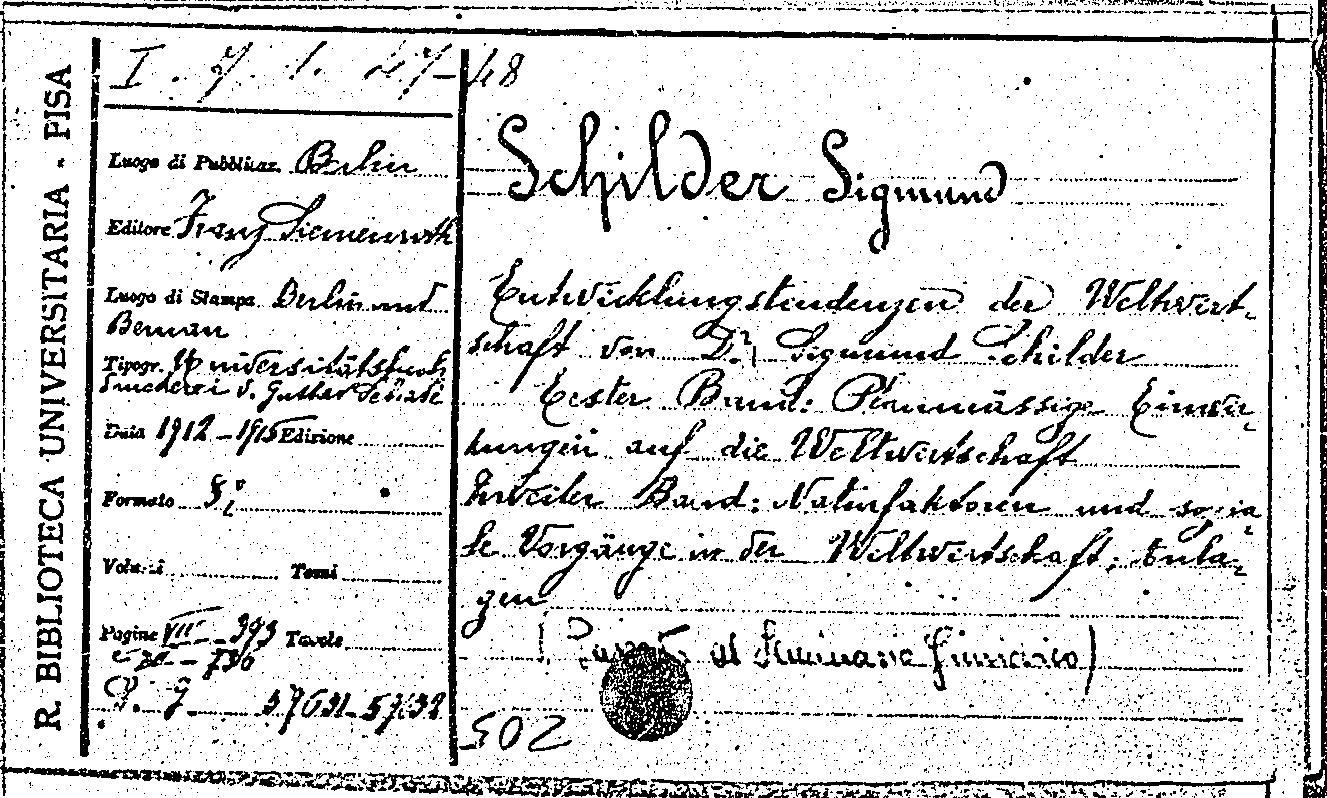 R. BIBLIOTECA UNIVERSITARIA - PISA
I. 7. 1. 47-48
Luogo di Pubblicaz. Berlin
Editore Franz Siemenroth
Luogo di Stampa Berlin und
Bernau
Tipogr. Universitätsbuch
druckerei v. Gustav Schade
Data 1912-1915 Edizione
Formato 8°
Volumi Tomi
Pagine VIII-393 Tavole
R. g. 57631-57632
Schilder Sigmund
Entwicklungstendenzen der Weltwirt-
schaft von Dr. Sigmund Schilder
Erster Band: Planmässige Einwir-
kungen auf die Weltwirtschaft
Zweiter Band: Naturfaktoren und sozia-
le Vorgänge in der Weltwirtschaft; Enla-
gen
al Seminario Giuridico)
502